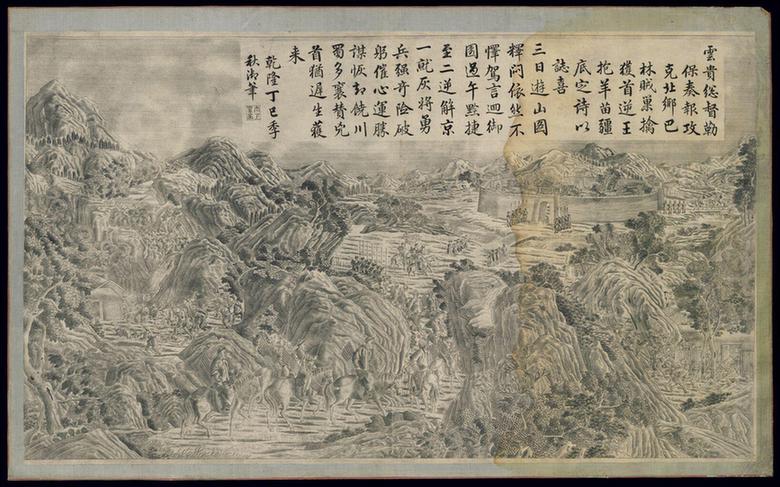 雲貴總督勒
保奏報攻
克北鄉巴
林賊巢擒
獲首逆王
抱羊苗疆
底定詩以
誌喜
三日遊山圖
釋問依然不
懌駕言迴御
園過午捷
至二逆解京
一就灰將勇
兵强奇險破
躬催心運勝
謀恢饒川
蜀多襄賛兇
首猶遲生獲
来
乾隆丁巳季
秋御筆